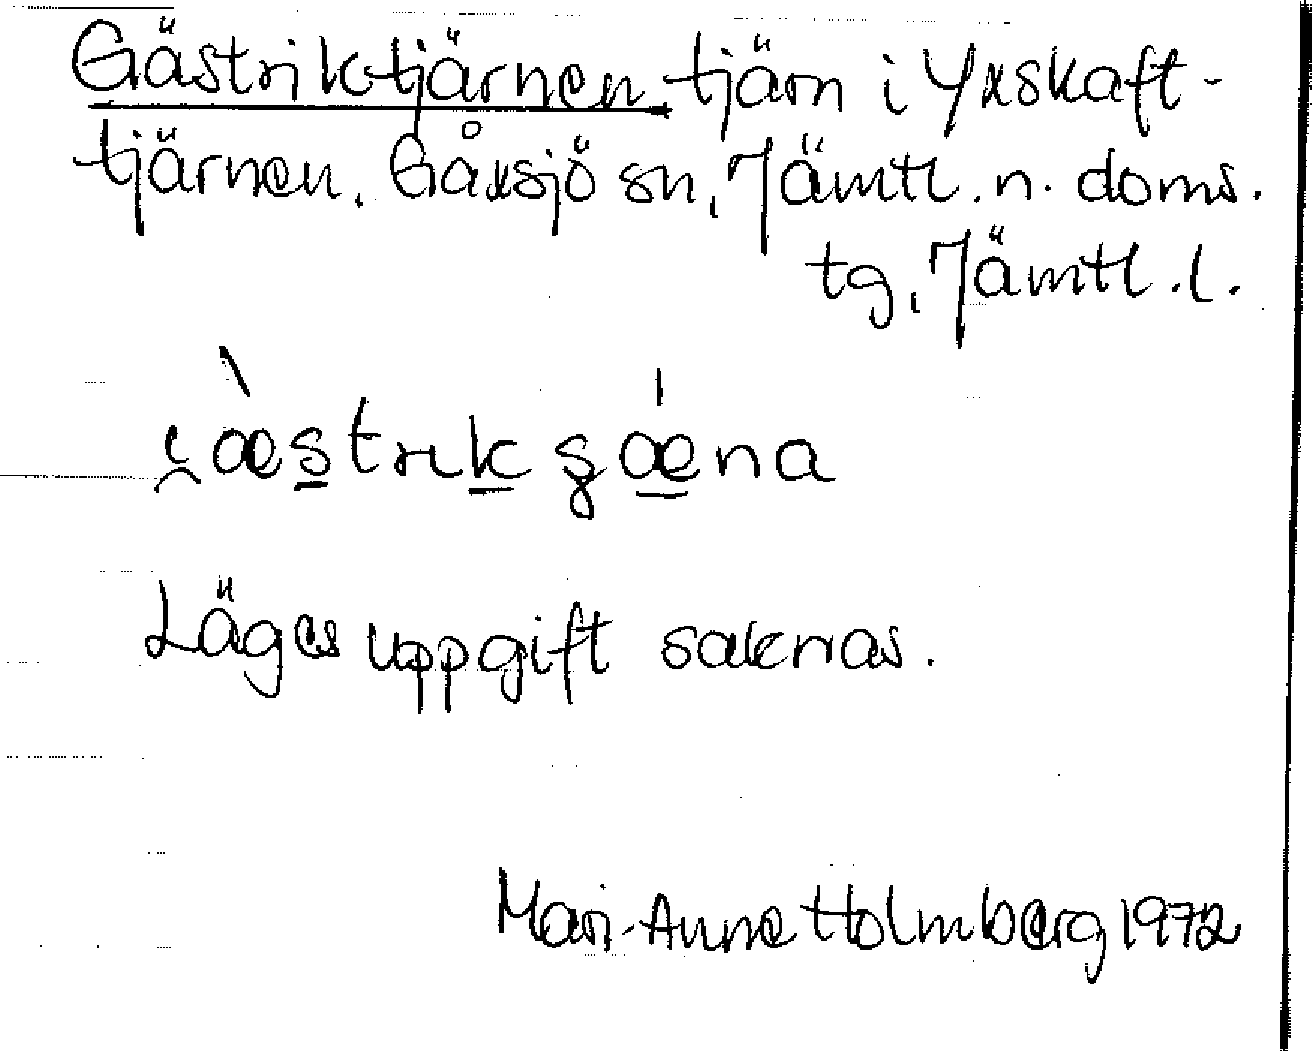 Gästriktjärnen, tjärn i Yxskaft-
tjärnen, Gåxsjö sn, Jämtl. n. doms.
tg, Jämtl. l.
Lägesuppgift saknas.
Mari-Anne Holmberg 1972